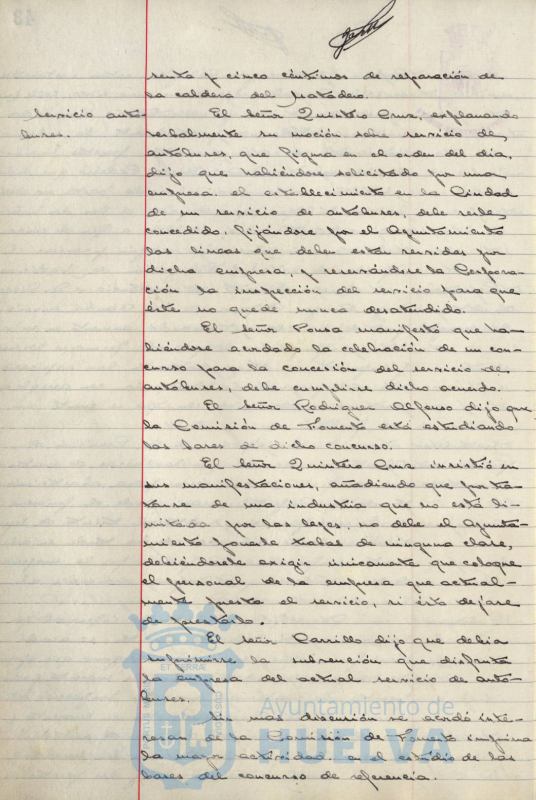 renta y cinco céntimos de reparación de
la caldera del Matadero.
Servicio auto-
buses.
El Señor Quintero Cruz, explanando
verbalmente su moción sobre servicio de
autobuses, que figura en el orden del día,
dijo que habiéndose solicitado por una
empresa, el establecimiento en la Ciudad
de un servicio de autobuses, debe serle
concedido, fijándose por el Ayuntamiento
las lineas que deben estar servidas por
dicha empresa, y reservándose la Corpora-
ción la inspección del servicio para que
éste no quede nunca desatendido.
El Señor Ponsa manifestó que ha-
biéndose acordado la celebración de un con-
curso para la concesión del servicio de
autobuses, debe cumplirse dicho acuerdo.
El Señor Rodriguez Alfonso dijo que
la Comisión de Fomento está estudiando
las bases de dicho concurso.
El Señor Quintero Cruz insistió en
sus manifestaciones, añadiendo que por tra-
tarse de una industria que no está li-
mitada por las leyes, no debe el Ayunta-
miento ponerle trabas de ninguna clase,
debiéndosele exigir únicamente que coloque
el personal de la empresa que actual-
mente presta el servicio, si ésta dejare
de prestarlo.
El Señor Carrillo dijo que debia
suprimirse la subvención que disfruta
la empresa del actual servicio de auto-
buses.
Sin mas discusión se acordó inte-
resar de la Comisión de Fomento imprima
la mayor actividad en el estudio de las
bases del concurso de referencia.
Ayuntamiento de
HUELVA